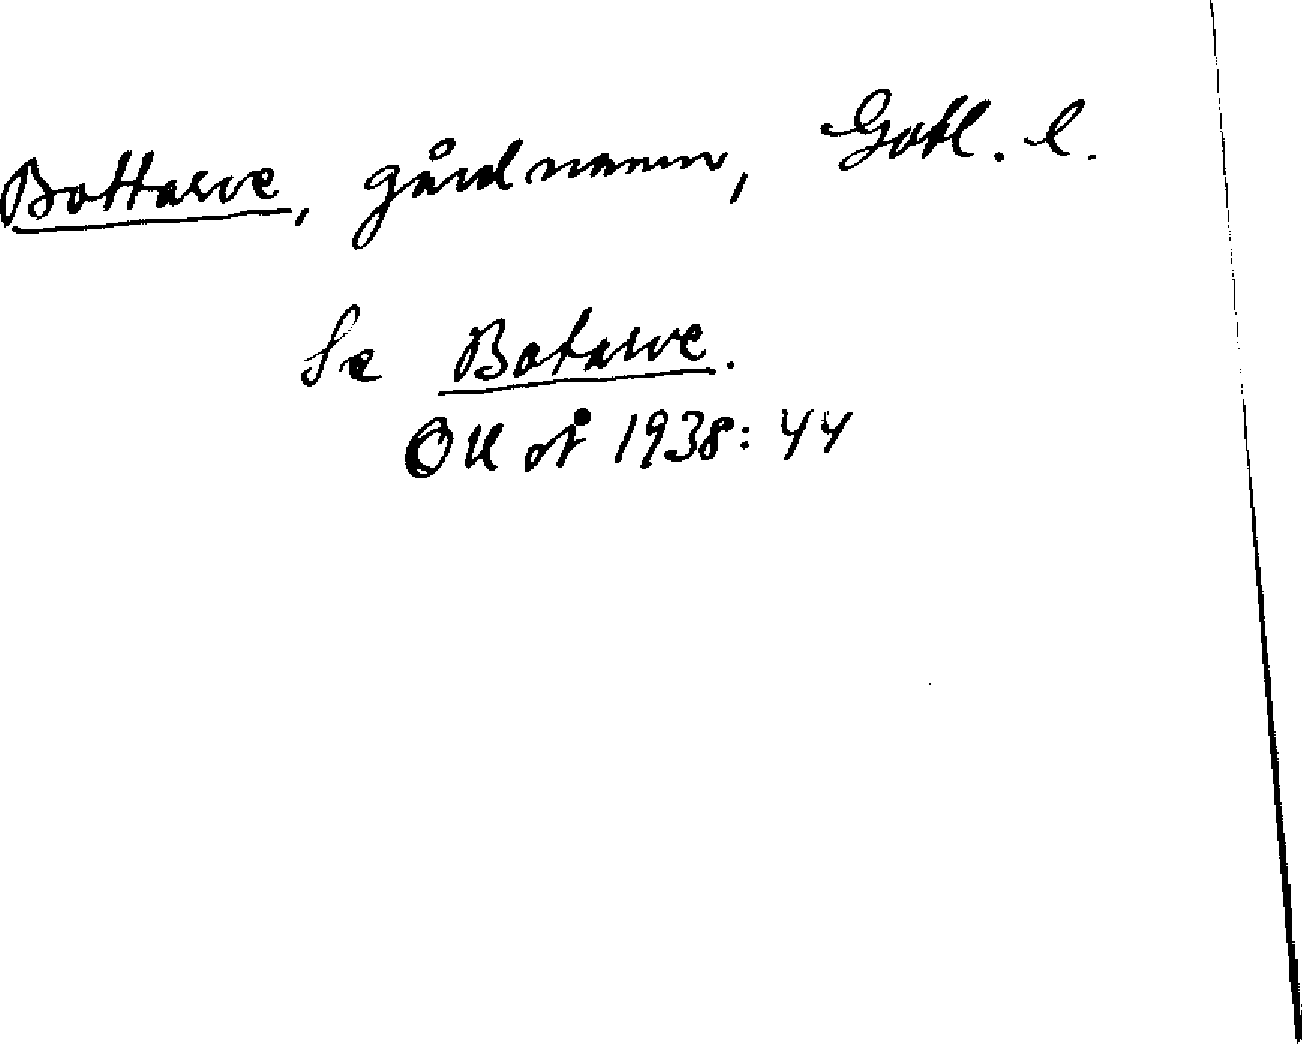 Bottarve, gårdnamn, Gotl. l.
Se Botarve.
OUÅ 1938: 44